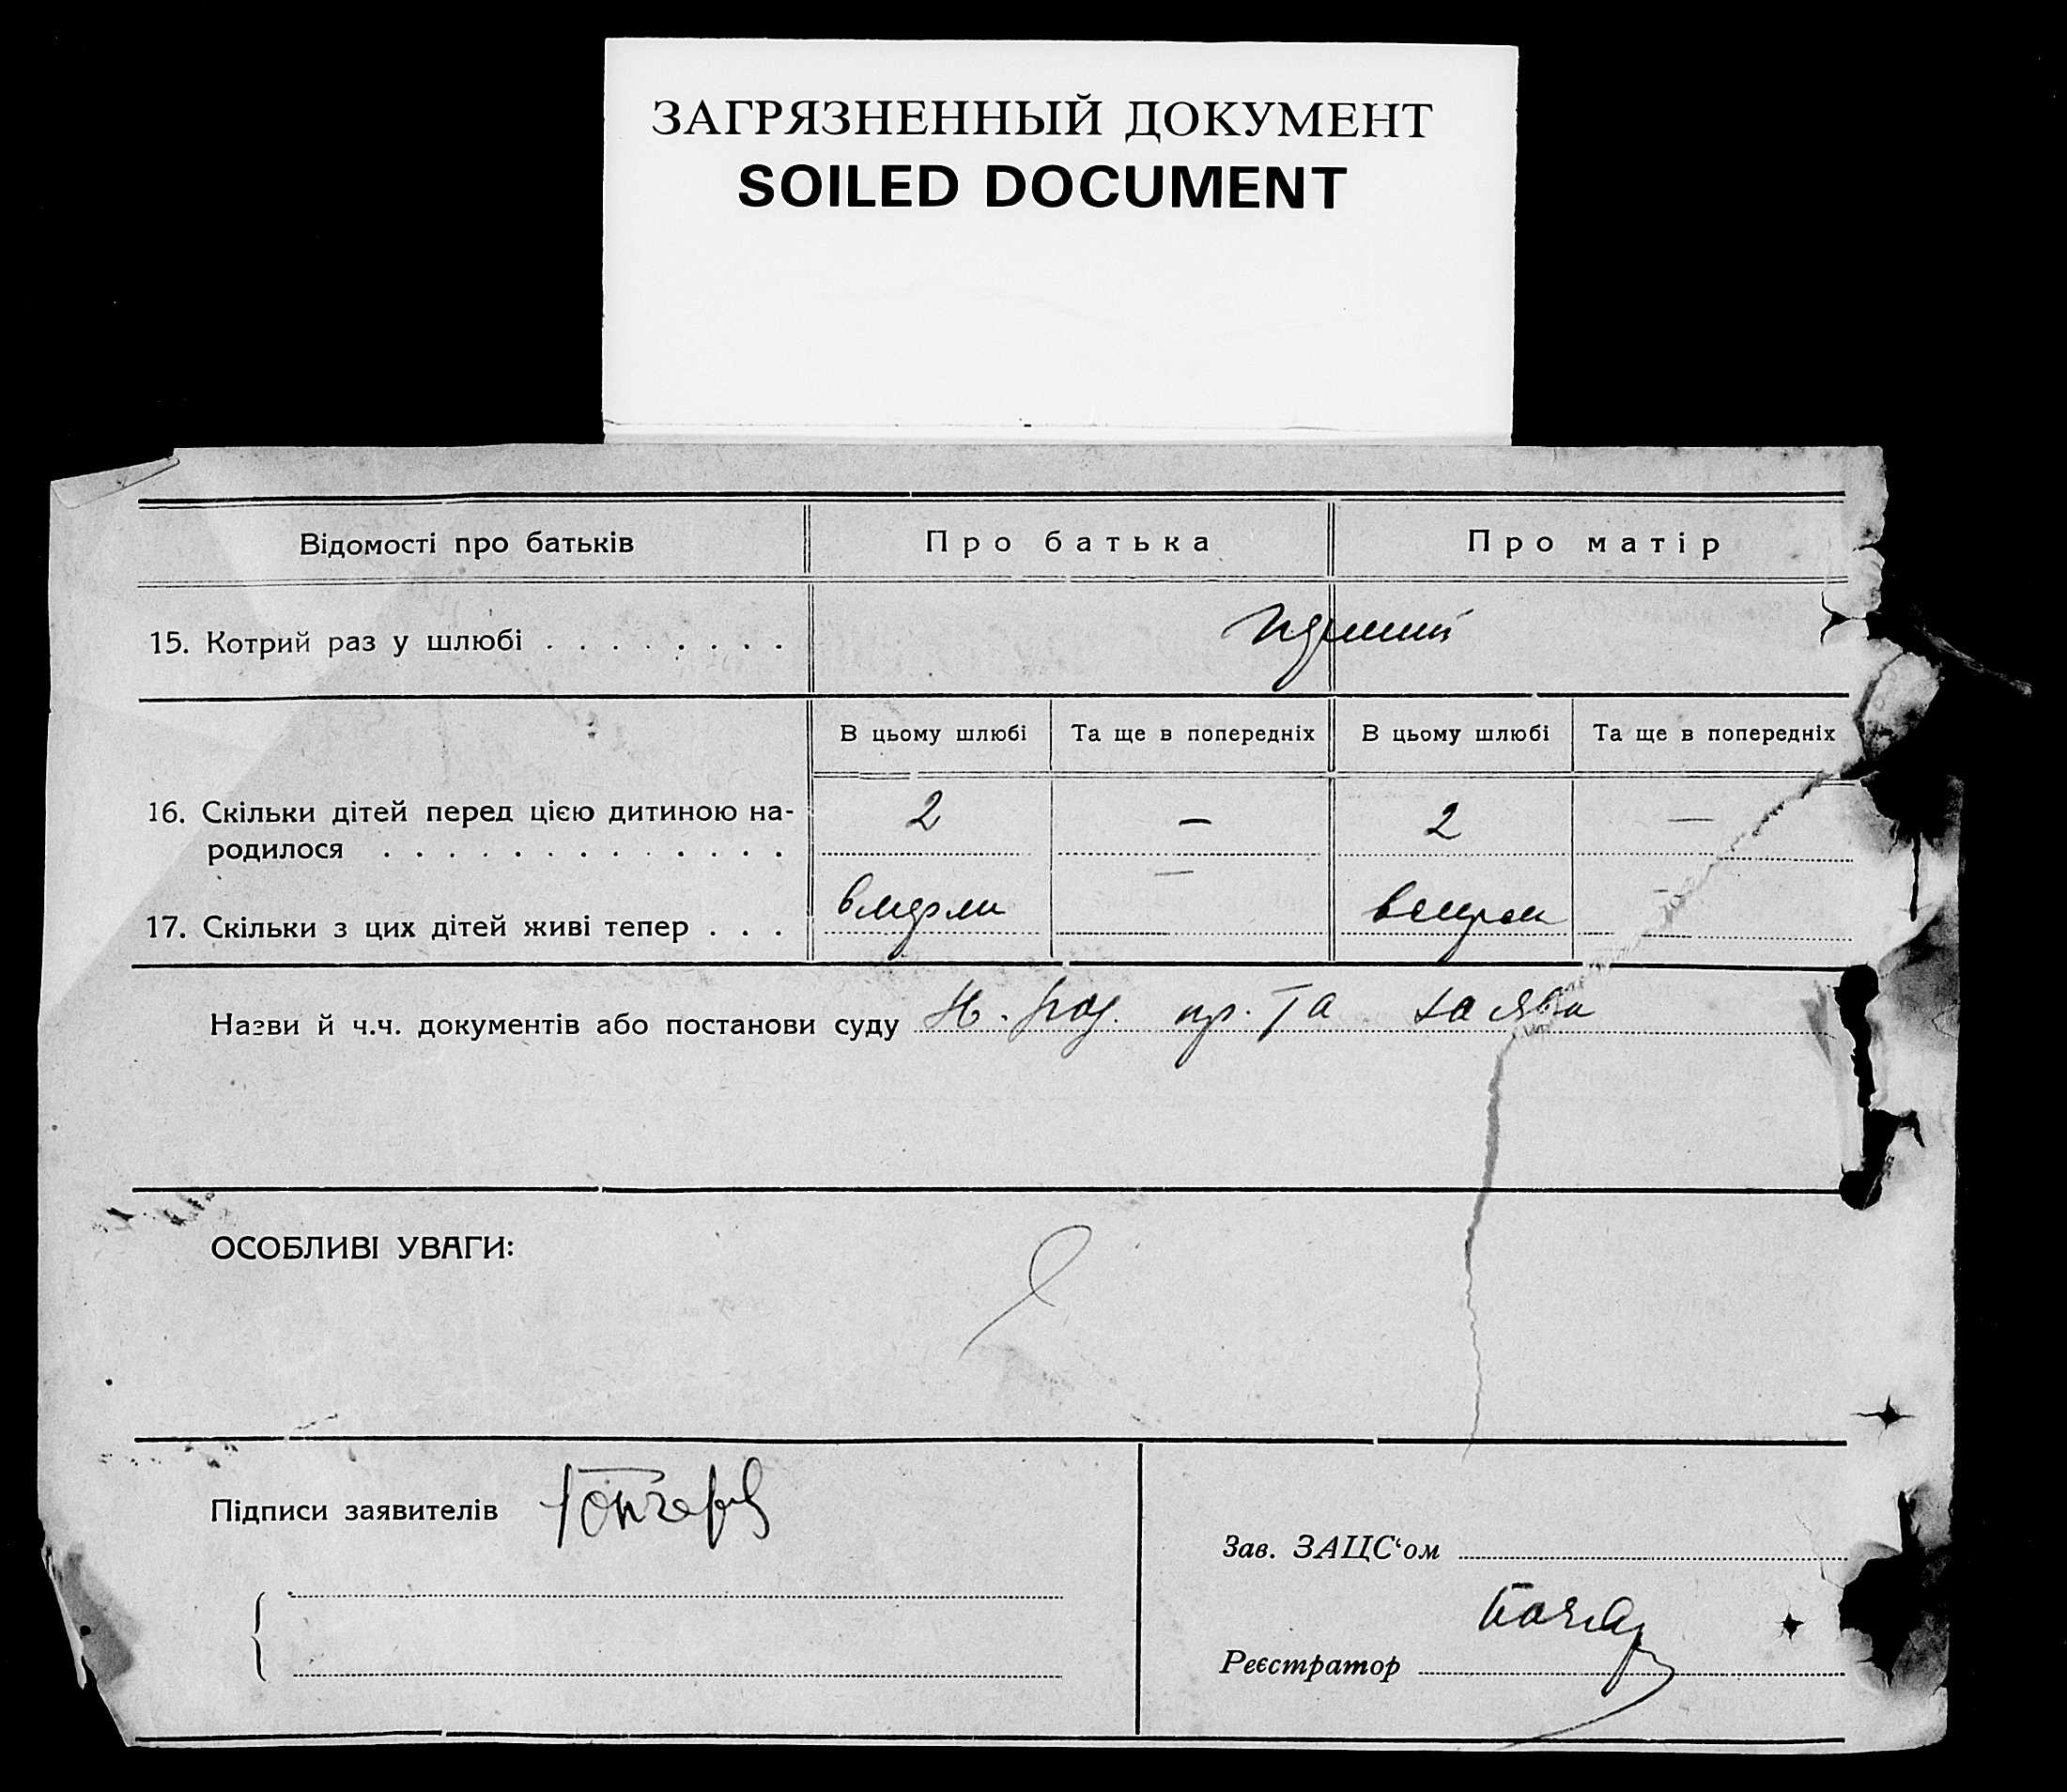 ЗАГРЯЗНЕННЫЙ ДОКУМЕНТ
SOILED DOCUMENT
Відомості про батьків Про батька Про матір
15. Котрий раз у шлюбі . . . . . . . .
В цьому шлюбі Та ще в попередніх В цьому шлюбі Та ще в попередніх
16. Скільки дітей перед цією дитиною на- 2 — 2 —
родилося . . . . . . . . . . . . .
17. Скільки з цих дітей живі тепер . . . вмерли — вмерли —
Назви й ч.ч. документів або постанови суду та заява
ОСОБЛИВІ УВАГИ:
Підписи заявителів
Зав. ЗАЦС‘ом
Реєстратор